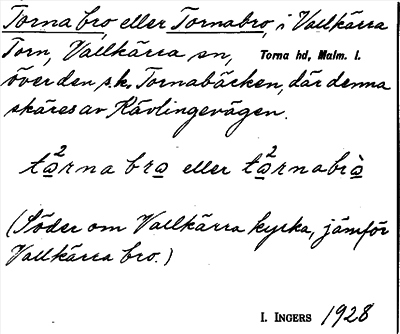 Torna bro eller Tornabro, i Vallkärra
Torn, Vallkärra sn, Torna hd, Malm. l.
över den s.k. Tornabäcken, där denna
skäres av Kävlingevägen.
tɑ̲²rna brɑ̲ eller tɑ̲²rnabrɑ̲̀
(Söder om Vallkärra kyrka, jämför
Vallkärra bro.)
I. INGERS 1928